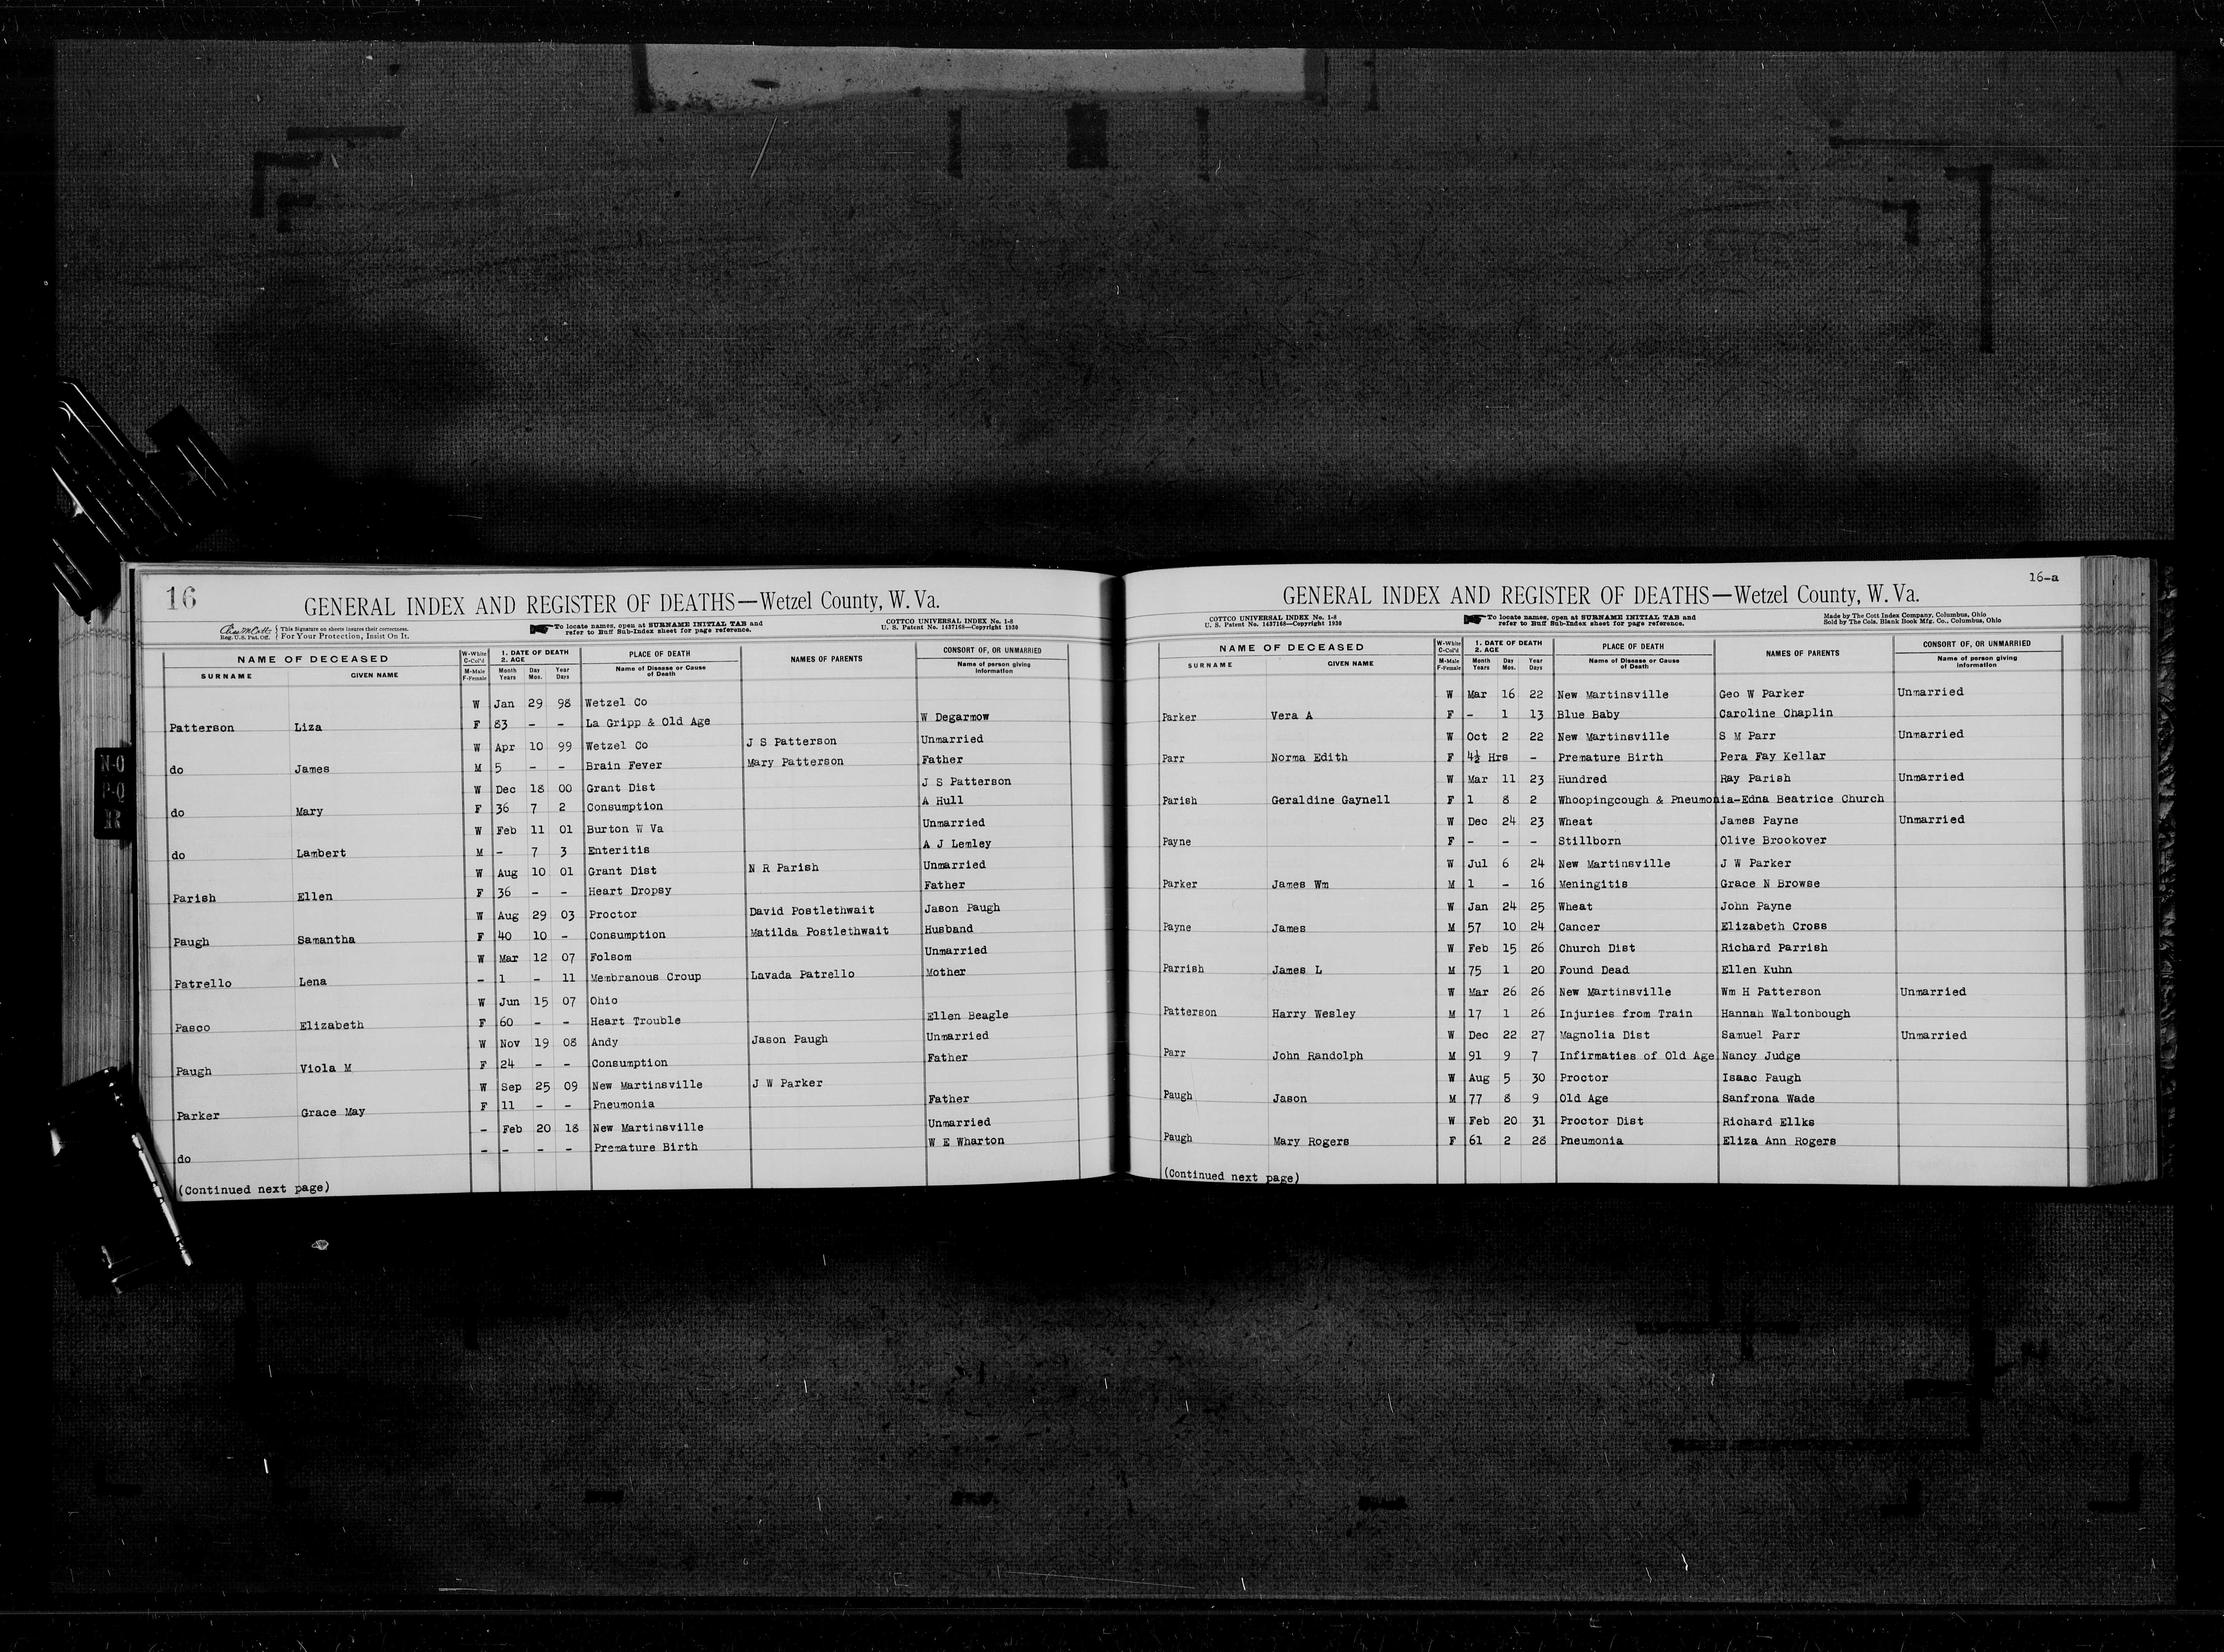 16
GENERAL INDEX AND REGISTER OF DEATHS—Wetzel County, W. Va.
Reg. U.S. Pat. Off. { This Signature on sheets insures their correctness. For Your Protection, Insist On It.
To locate names, open at SURNAME INITIAL TAB and refer to Buff Sub-Index sheet for page reference.
COTTCO UNIVERSAL INDEX No. 1-8
U. S. Patent No. 1437168—Copyright 1930
NAME OF DECEASED W-White C-Col'd 1. DATE OF DEATH 2. AGE PLACE OF DEATH NAMES OF PARENTS CONSORT OF, OR UNMARRIED
SURNAME GIVEN NAME M-Male F-Female Month Years Day Mos. Year Days Name of Disease or Cause of Death Name of person giving information
W Jan 29 98 Wetzel Co
Patterson Liza F 83 - - La Gripp & Old Age W Degarmow
W Apr 10 99 Wetzel Co J S Patterson Unmarried
do James M 5 - - Brain Fever Mary Patterson Father
W Dec 18 00 Grant Dist J S Patterson
do Mary F 36 7 2 Consumption A Hull
W Feb 11 01 Burton W Va Unmarried
do Lambert M - 7 3 Enteritis A J Lemley
W Aug 10 01 Grant Dist N R Parish Unmarried
Parish Ellen F 36 - - Heart Dropsy Father
W Aug 29 03 Proctor David Postlethwait Jason Paugh
Paugh Samantha F 40 10 - Consumption Matilda Postlethwait Husband
W Mar 12 07 Folsom Unmarried
Patrello Lena - 1 - 11 Membranous Croup Lavada Patrello Mother
W Jun 15 07 Ohio
Pasco Elizabeth F 60 - - Heart Trouble Ellen Beagle
W Nov 19 08 Andy Jason Paugh Unmarried
Paugh Viola M F 24 - - Consumption Father
W Sep 25 09 New Martinsville J W Parker
Parker Grace May F 11 - - Pneumonia Father
- Feb 20 18 New Martinsville Unmarried
do - - - - Premature Birth W E Wharton
(Continued next page)
16-a
GENERAL INDEX AND REGISTER OF DEATHS—Wetzel County, W. Va.
COTTCO UNIVERSAL INDEX No. 1-8
U. S. Patent No. 1437168—Copyright 1930
To locate names, open at SURNAME INITIAL TAB and refer to Buff Sub-Index sheet for page reference.
Made by The Cott Index Company, Columbus, Ohio
Sold by The Cols. Blank Book Mfg. Co., Columbus, Ohio
NAME OF DECEASED W-White C-Col'd 1. DATE OF DEATH 2. AGE PLACE OF DEATH NAMES OF PARENTS CONSORT OF, OR UNMARRIED
SURNAME GIVEN NAME M-Male F-Female Month Years Day Mos. Year Days Name of Disease or Cause of Death Name of person giving information
W Mar 16 22 New Martinsville Geo W Parker Unmarried
Parker Vera A F - 1 13 Blue Baby Caroline Chaplin
W Oct 2 22 New Martinsville S M Parr Unmarried
Parr Norma Edith F 4½ Hrs - Premature Birth Pera Fay Kellar
W Mar 11 23 Hundred Ray Parish Unmarried
Parish Geraldine Gaynell F 1 8 2 Whoopingcough & Pneumonia-Edna Beatrice Church
W Dec 24 23 Wheat James Payne Unmarried
Payne F - - - Stillborn Olive Brookover
W Jul 6 24 New Martinsville J W Parker
Parker James Wm M 1 - 16 Meningitis Grace N Browse
W Jan 24 25 Wheat John Payne
Payne James M 57 10 24 Cancer Elizabeth Cross
W Feb 15 26 Church Dist Richard Parrish
Parrish James L M 75 1 20 Found Dead Ellen Kuhn
W Mar 26 26 New Martinsville Wm H Patterson Unmarried
Patterson Harry Wesley M 17 1 26 Injuries from Train Hannah Waltonbough
W Dec 22 27 Magnolia Dist Samuel Parr Unmarried
Parr John Randolph M 91 9 7 Infirmaties of Old Age Nancy Judge
W Aug 5 30 Proctor Isaac Paugh
Paugh Jason M 77 8 9 Old Age Sanfrona Wade
W Feb 20 31 Proctor Dist Richard Ellks
Paugh Mary Rogers F 61 2 28 Pneumonia Eliza Ann Rogers
(Continued next page)
N-O
P-Q
R